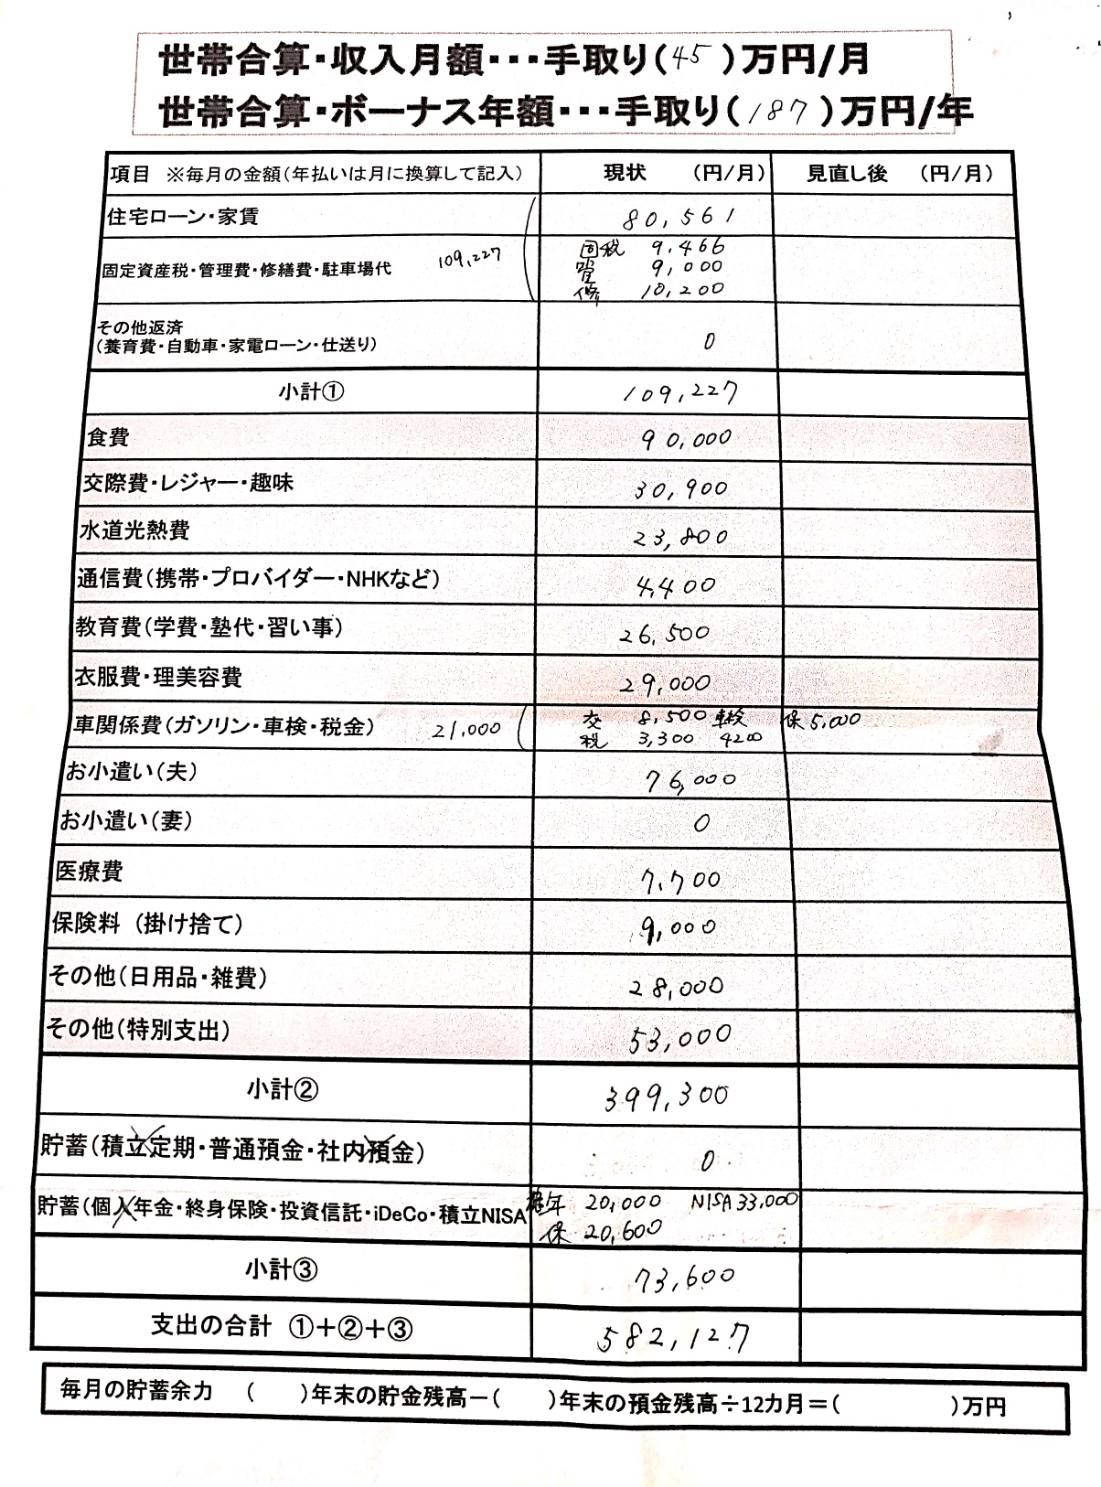 世帯合算・収入月額・・・手取り(45)万円/月
世帯合算・ボーナス年額・・・手取り(187)万円/年
項目 ※毎月の金額(年払いは月に換算して記入) 現状 (円/月) 見直し後 (円/月)
住宅ローン・家賃 80,561
固定資産税・管理費・修繕費・駐車場代 109,227 固税 9,466
管 9,000
修 10,200
その他返済
(養育費・自動車・家電ローン・仕送り) 0
小計① 109,227
食費 90,000
交際費・レジャー・趣味 30,900
水道光熱費 23,800
通信費(携帯・プロバイダー・NHKなど) 4,400
教育費(学費・塾代・習い事) 26,500
衣服費・理美容費 29,000
車関係費(ガソリン・車検・税金) 21,000 交 8,500 車検 保 5,000
税 3,300 4200
お小遣い(夫) 76,000
お小遣い(妻) 0
医療費 7,700
保険料 (掛け捨て) 9,000
その他(日用品・雑費) 28,000
その他(特別支出) 53,000
小計② 399,300
貯蓄(積立定期・普通預金・社内預金) 0
貯蓄(個人年金・終身保険・投資信託・iDeCo・積立NISA 年 20,000 NISA 33,000
保 20,600
小計③ 73,600
支出の合計 ①+②+③ 582,127
毎月の貯蓄余力 ( )年末の貯金残高-( )年末の預金残高÷12カ月=( )万円